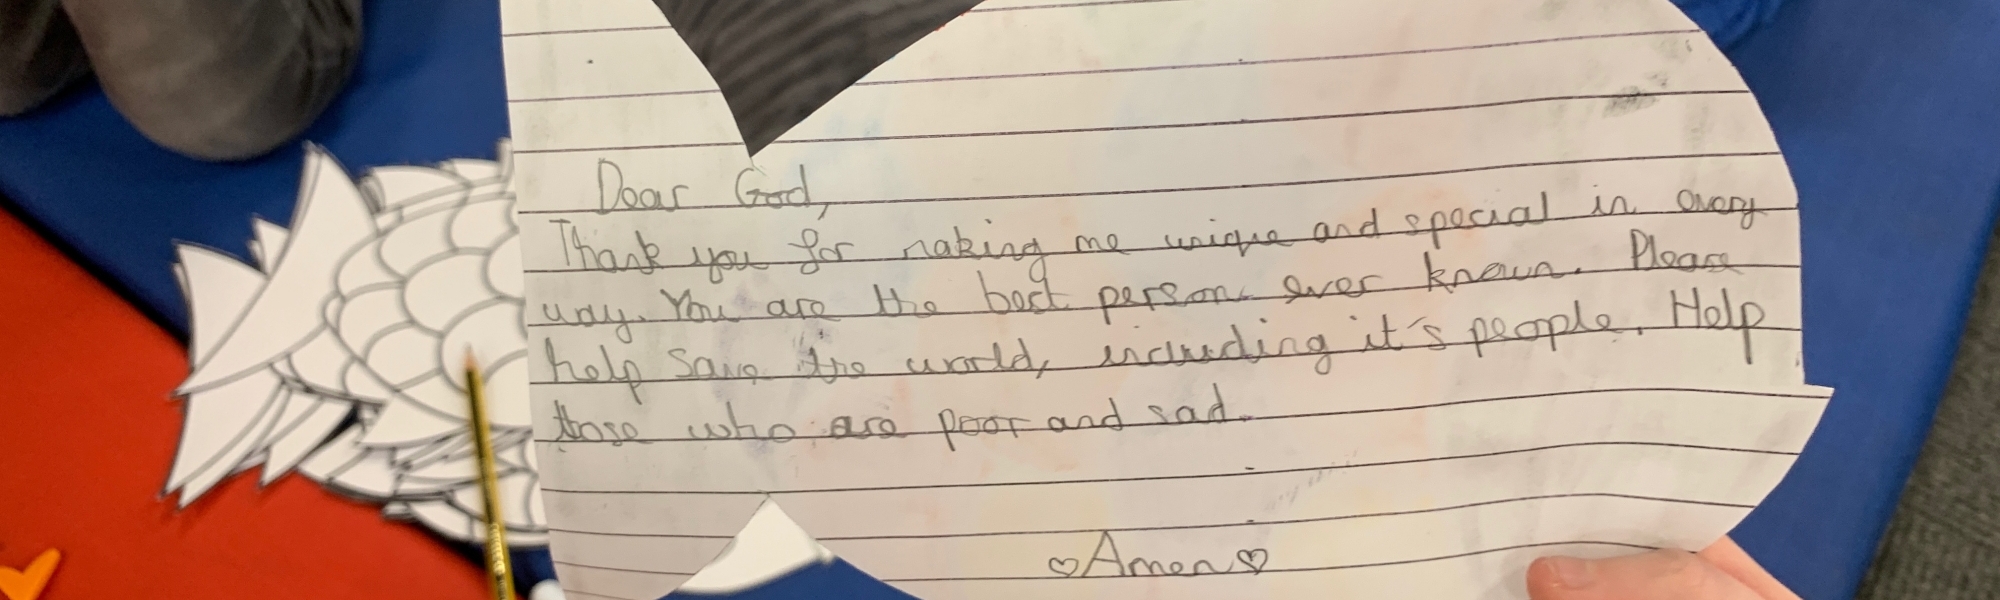 Dear God,
Thank you for making me unique and special in every
way. You are the best person ever known. Please
help save the world, including it's people. Help
those who are poor and sad.
♡Amen♡